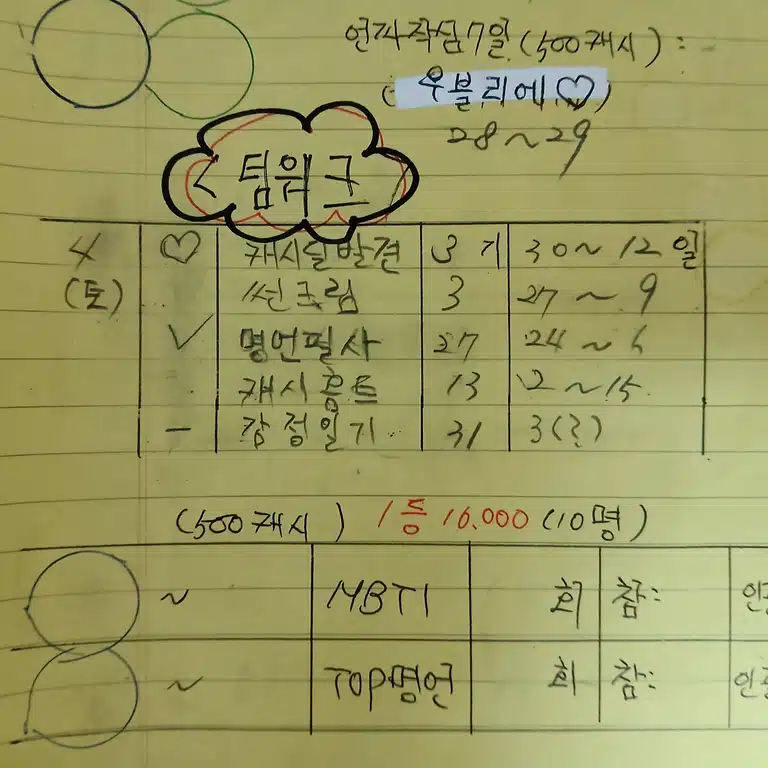 연자작심 7일 (500캐시) :
(우블리에♡)
28~29
<팀워크>
4 ♡ 캐시딜발견 3기 30~12일
(토) 썬크림 3 27~9
✓ 명언필사 27 24~6
캐시홈트 13 12~15
- 감정일기 31 3(?)
(500캐시) 1등 10.000 (10명)
~ MBTI 회 참:
~ TOP명언 회 참: